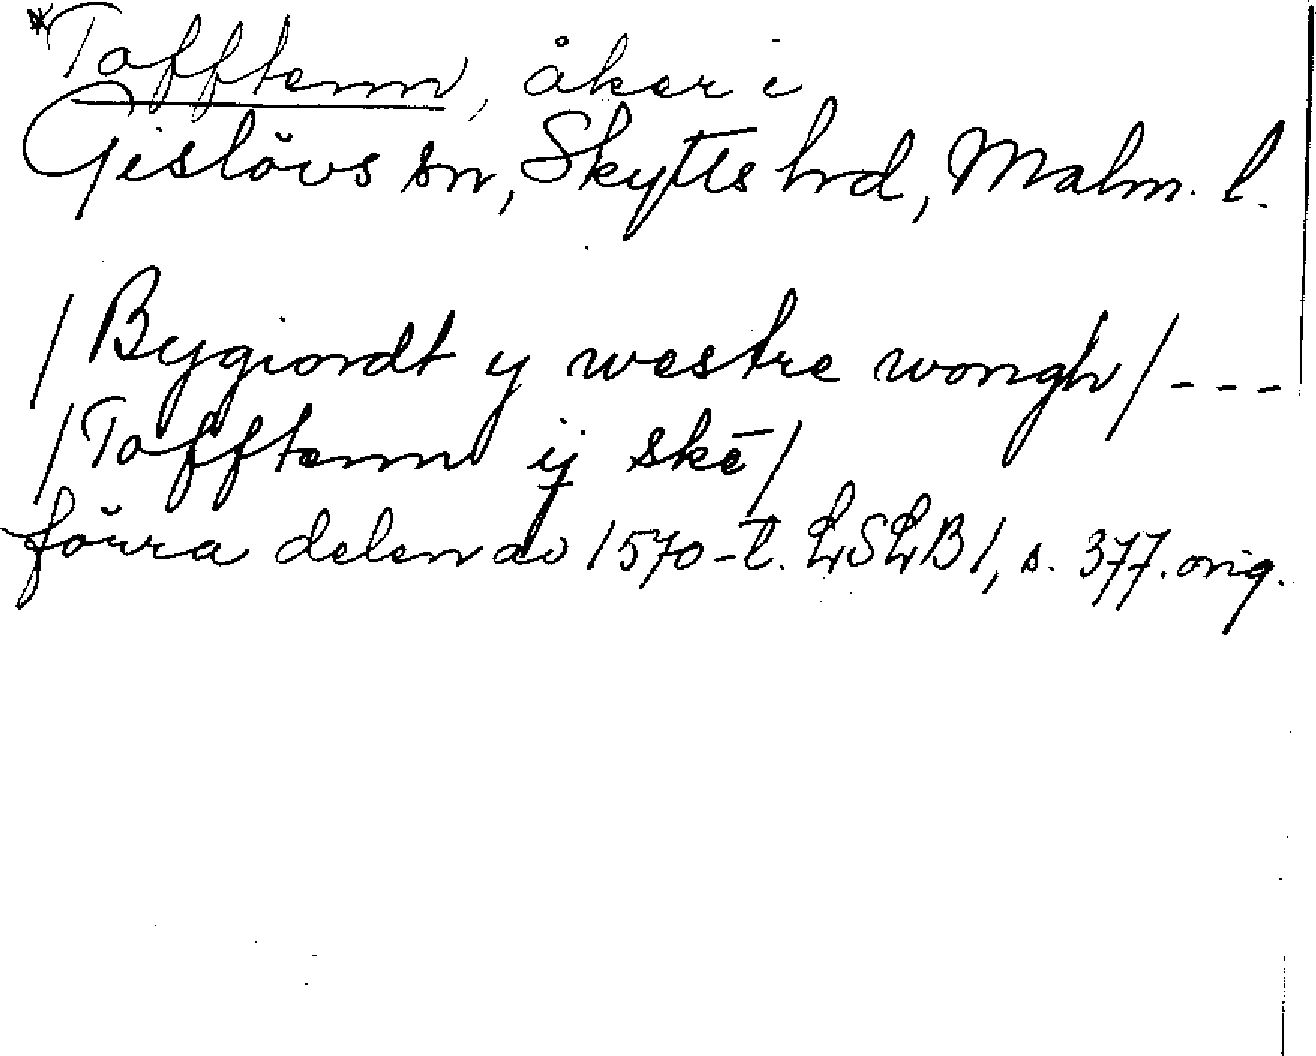 *Tofftenn, åker i
Gislövs sn, Skytts hrd, Malm. l.
/Bygiordt y westre wongh/---
/Tofftenn ij skē/
förra delen av 1570-t. LSLB1, s. 377. orig.